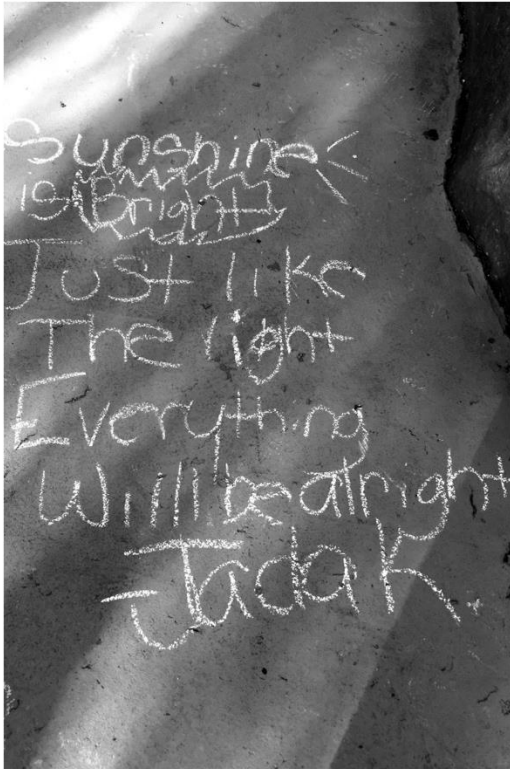 Sunshine
is Bright
Just like
The light
Everything
Will be alright
-Jada K.